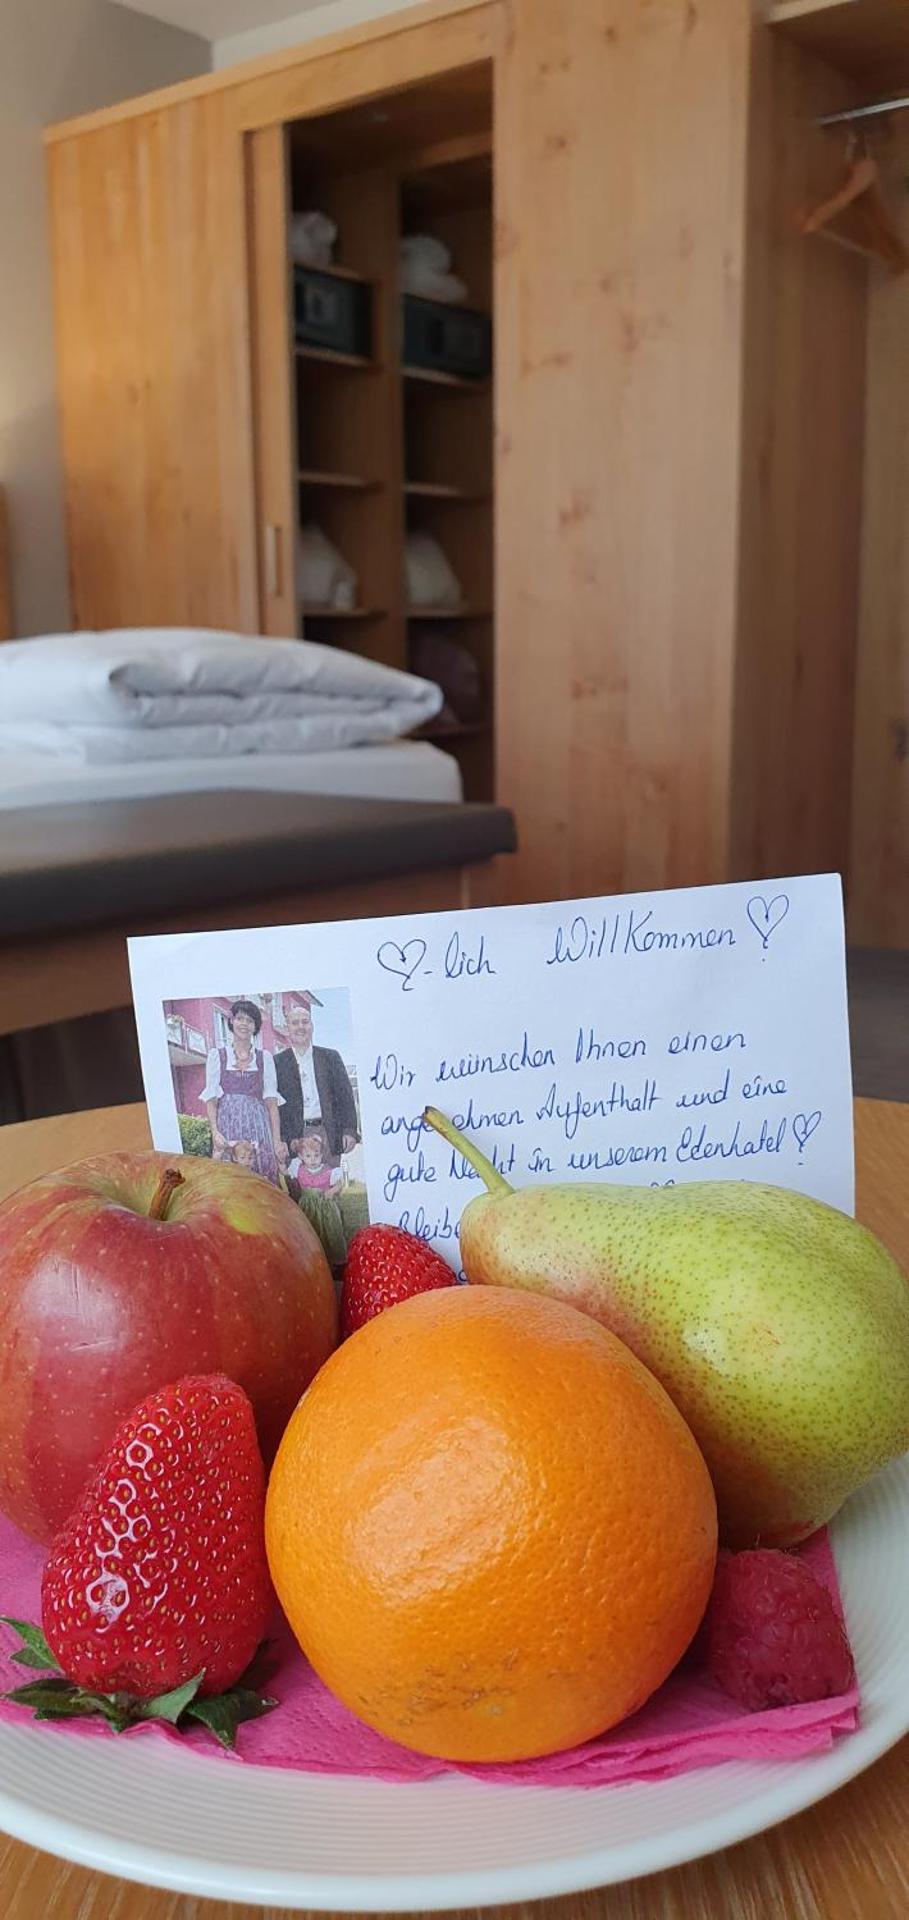 ♡-lich Willkommen ♡
Wir wünschen Ihnen einen
angenehmen Aufenthalt und eine
gute Nacht in unserem Edenhotel ♡
Bleibe